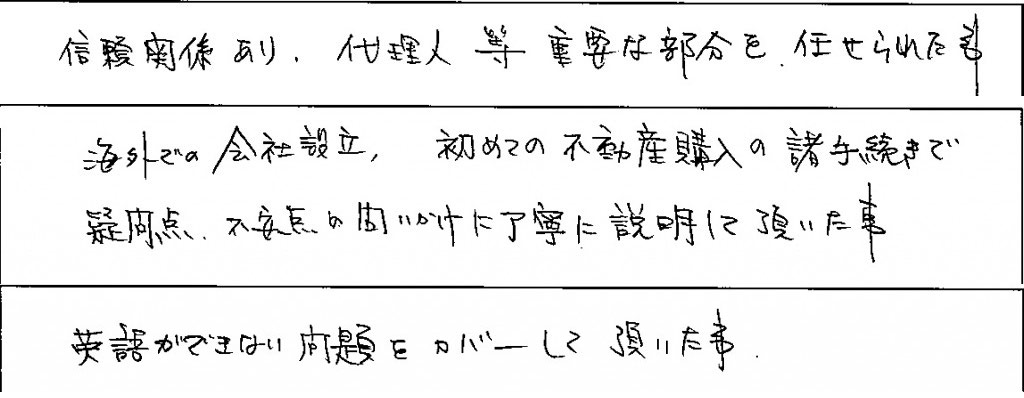 信頼関係あり、代理人等重要な部分を、任せられた事
海外での会社設立、初めての不動産購入の諸手続きで
疑問点、不安点の問いかけに丁寧に説明して頂いた事
英語ができない問題をカバーして頂いた事.